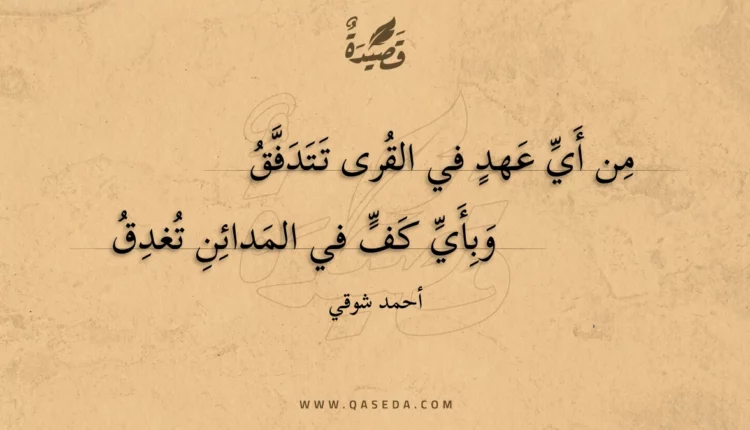 قَصِيدَةٌ
مِن أَيِّ عَهدٍ في القُرى تَتَدَفَّقُ
وَبِأَيِّ كَفٍّ في المَدائِنِ تُغدِقُ
أحمد شوقي
WWW.QASEDA.COM